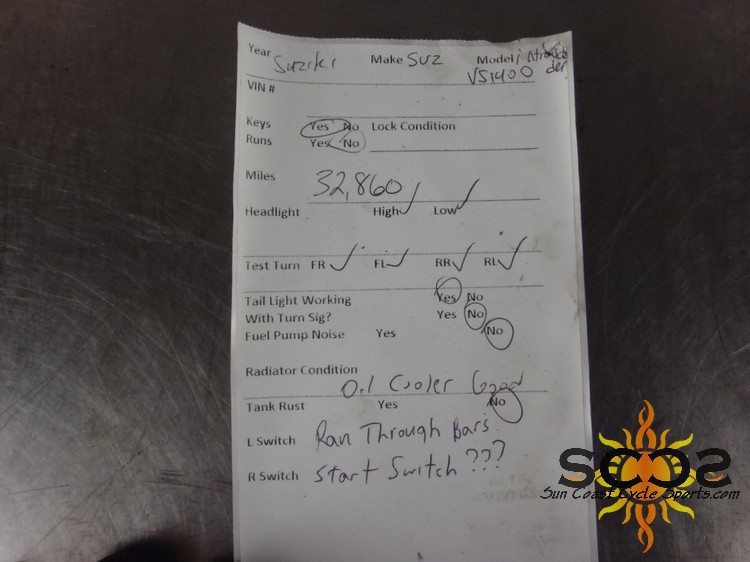 Year Suziki Make SUZ Model intruder
VS1400
VIN #
Keys Yes No Lock Condition
Runs Yes No
Miles 32,860
Headlight High✓ Low✓
Test Turn FR ✓ FL✓ RR✓ RL✓
Tail Light Working Yes No
With Turn Sig? Yes No
Fuel Pump Noise Yes No
Radiator Condition
Oil Cooler Good
Tank Rust Yes No
L Switch Ran Through Bars
R Switch Start Switch ???
SCCS
Sun Coast Cycle Sports.com